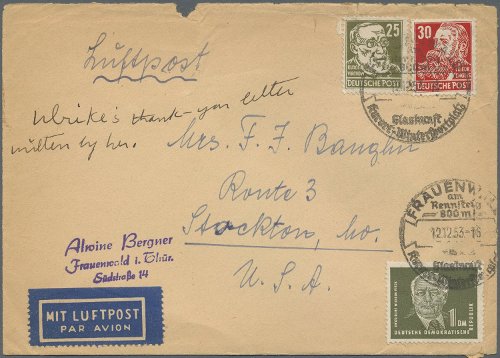 Luftpost
25
30
DEUTSCHE POST
DEUTSCHE POST
Ulrike's thank-you letter
written by her.
Mrs. F. F. Baughn
Route 3
Stockton, Mo.
U.S.A.
Glaskunst
Kurort-Wintersportplatz
FRAUENW
am
Rennsteig
800 m
12.12.53-16
Glaskunst
Alwine Bergner
Frauenwald i. Thür.
Südstraße 14
MIT LUFTPOST
PAR AVION
1 DM
DEUTSCHE DEMOKRATISCHE
REPUBLIK